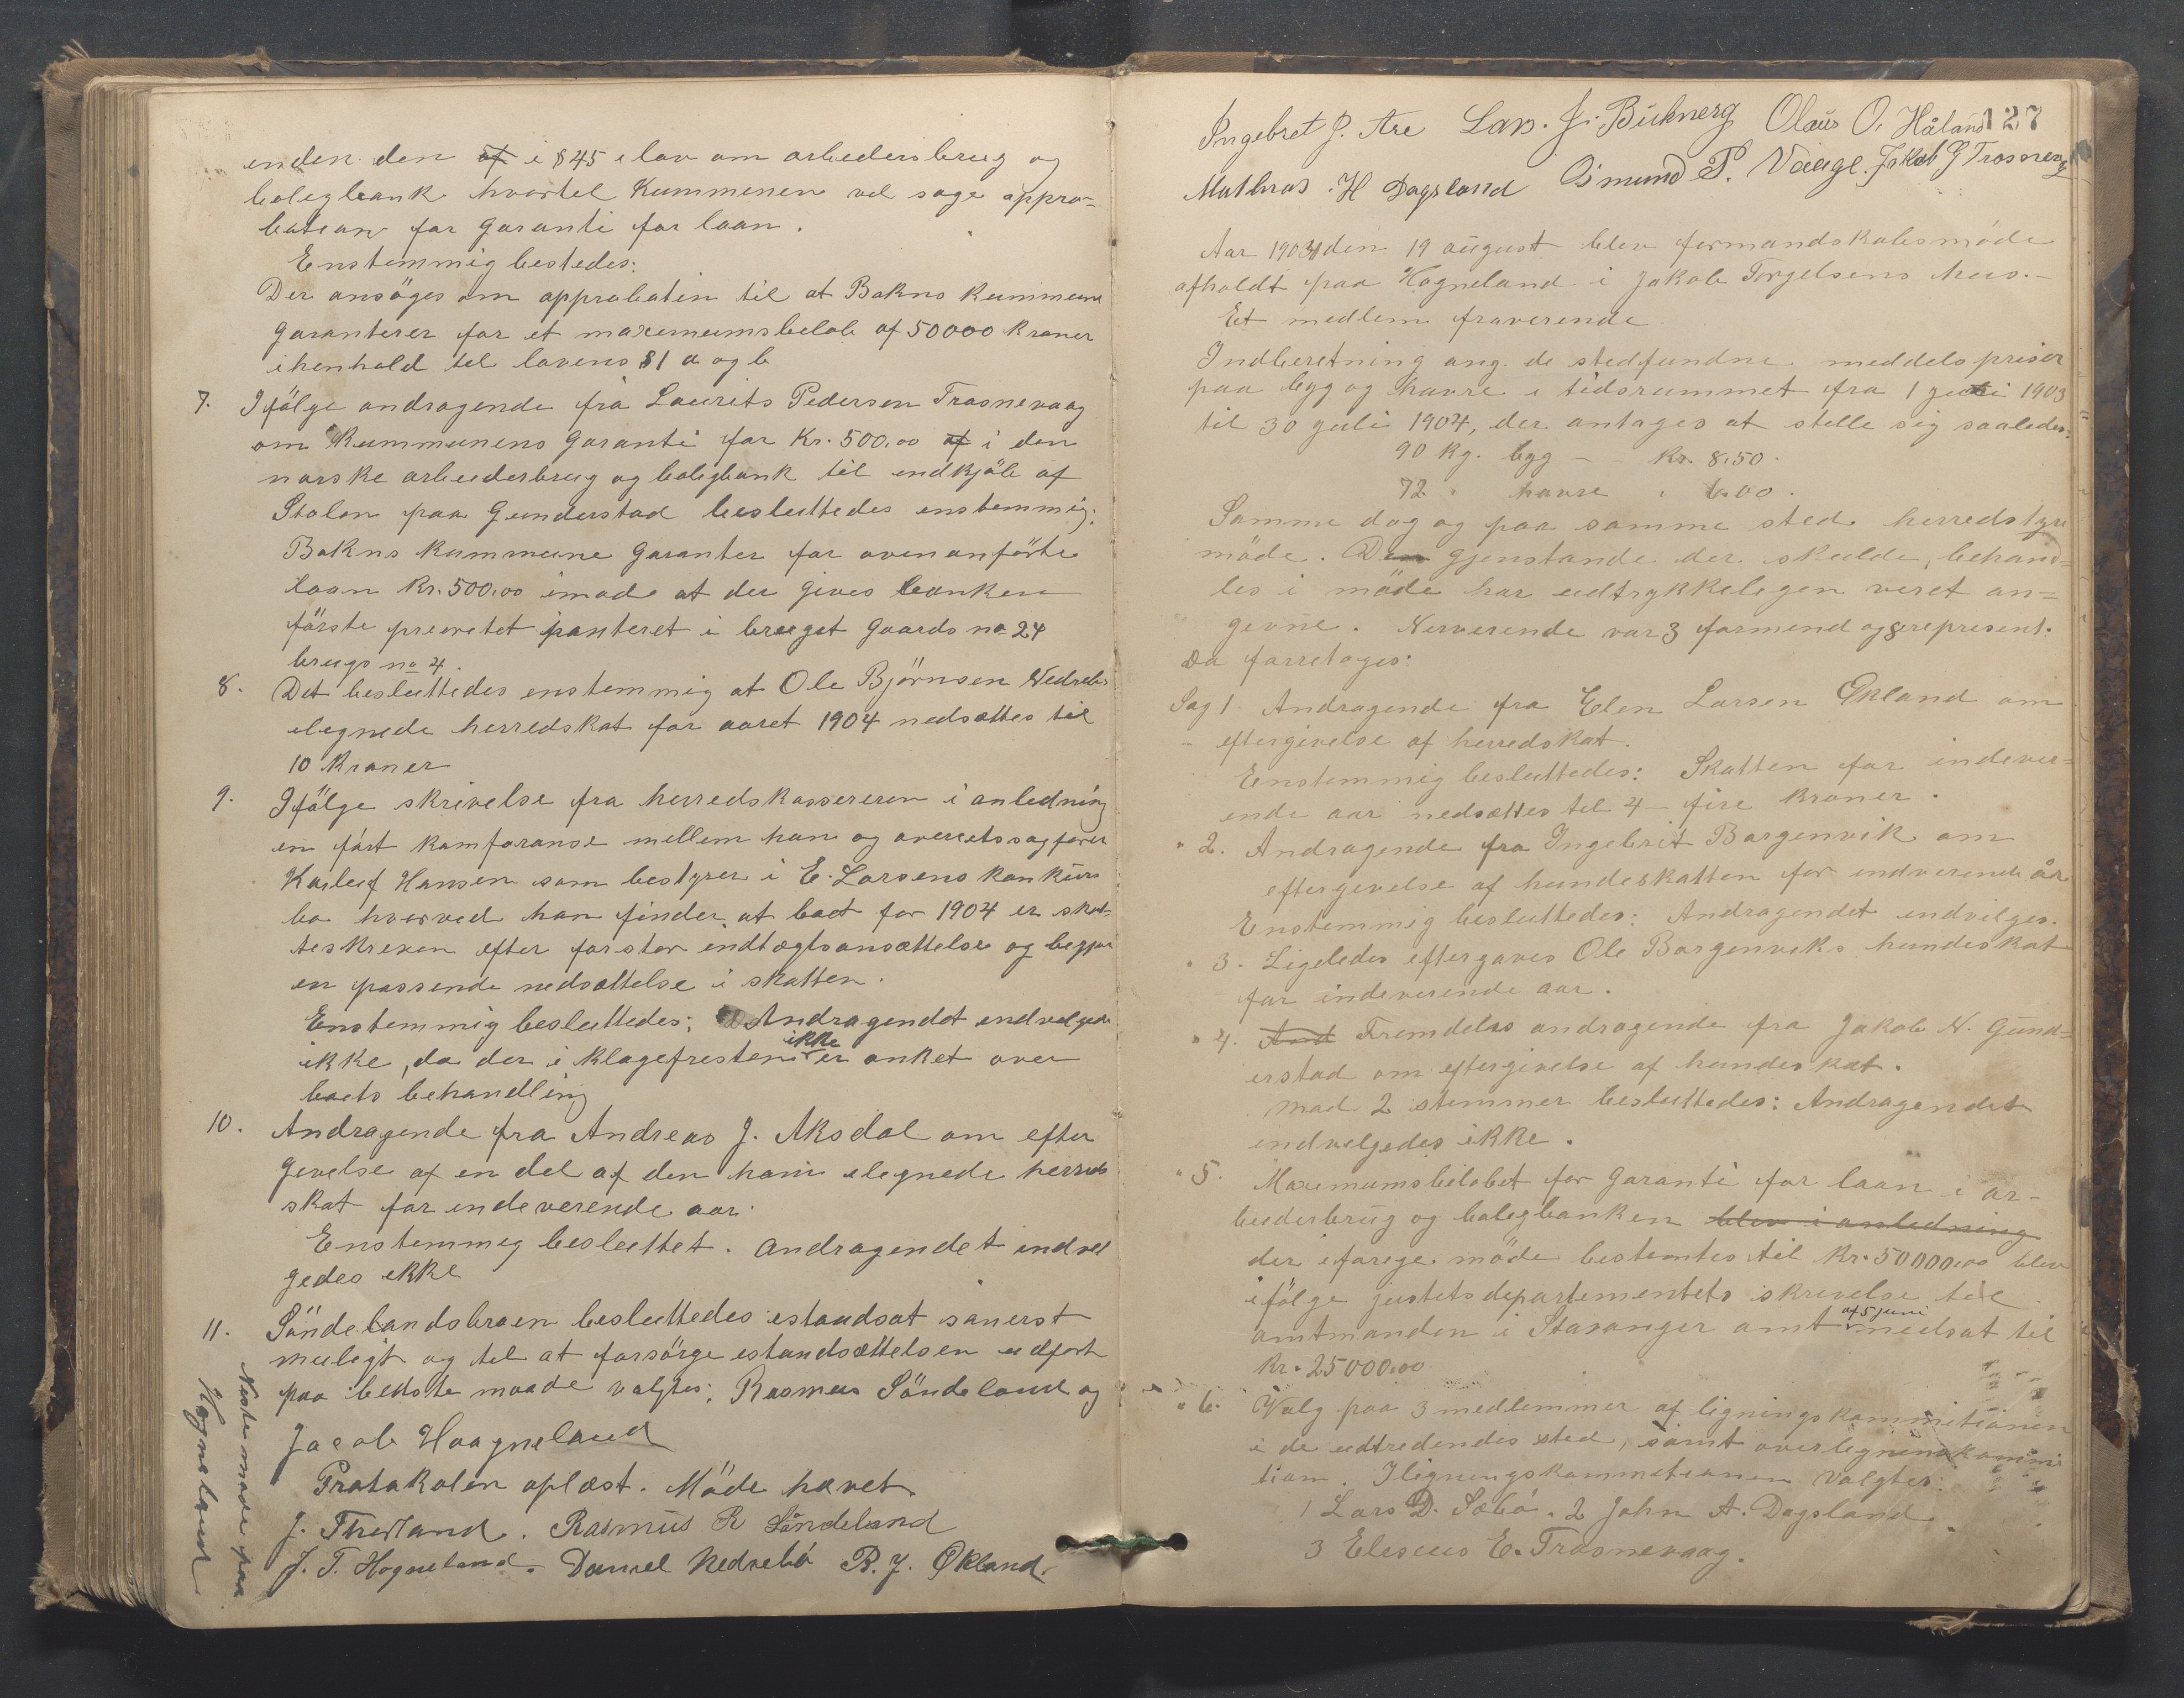 enden den af i § 45 i lov om arbeidersbrug og
boligbank hvortil Kummenen vil søge appro-
bation for garanti for laan.
Enstemmig bestedes:
Der ansöges om approbatin til at Bokns kummune
garanterer for et maximumsbeløb af 50000 kroner
ihenhold til lovens § 1 a og b
7. Ifölge andragende fra Laurits Pedersen Trosnevaag
om Kummunens garanti for Kr. 500,00 af i den
norske arbeiderbrug og boligbank til indkjöb af
Stolen paa Gunderstad besluttedes enstemmig:
Bokns kummune garanter for ovenanförte
laan Kr. 500,00 imod at der gives banken
förste prioritet panteret i bruget gaards no 24
brugs no 4.
8. Det besluttedes enstemmig at Ole Björnsen Nedrebö
ilegnede herredskat for aaret 1904 nedsættes til
10 Kroner
9. Ifölge skrivelse fra herredskassereren i anledning
en fört komforanse mellem han og overretssagfører
Karluf Hansen som bestyrer i E. Larsens konkurs
bo hvorved han finder at boet for 1904 er skat-
teskreven efter for stor indtægtsansættelse og begjær
en passende nedsættelse i skatten.
Enstemmig besluttedes: Andragendet indvelgedes
ikke, da der i klagefristen ikke er anket over
boets behandling
10. Andragende fra Andreas J. Aksdal om efter
givelse af en del af den ham ilegnede herreds
skat for indeverende aar.
Enstemmig besluttet. Andragendet indvel
gedes ikke
11. Söndelandsbroen besluttedes istandsat snarest
muligt og til at forsörge istandsættelsen udfört
paa bedste maade valgtes: Rasmus Söndeland og
Jacob Haagneland
Protokolen oplæst. Möde hævet.
J. Thorland. Rasmus R Söndeland
J. T. Hogneland. Daniel Nedrebö B. J. Økland.
Neste møde paa
Hogneland
127
Ingebret J. Are Lars. J. Buknerg Olaus O. Håland
Mathias H Dagsland Osmund P. Vaage. Jakob J Trosnevag
Aar 1904 den 19 august blev formandskabsmöde
afholdt paa Hogneland i Jakob Torgelsens hus.
Et medlem fraverende.
Indberetning ang. de stedfundne meddels priser
paa byg og havre i tidsrummet fra 1 juli 1903
til 30 juli 1904, der antages at stelle sig saaledes:
90 Kg. byg — Kr. 8,50.
72 " havre " 6,00.
Samme dag og paa samme sted herredstyre
möde. Den gjenstande der skulde, behand-
les i möde har udtrykkeligen veret an-
givne. Nerverende var 3 formend og 8 represent.
Da forretoges:
Sag 1. Andragende fra Elen Larsen Økland om
eftergivelse af herredskat.
Enstemmig besluttedes: Skatten for indever-
ende aar nedsættes til 4 - fire kroner.
" 2. Andragende fra Ingebrit Borgenvik om
eftergivelse af hundeskatten for indverende år
Enstemmig besluttedes: Andragendet indvilges.
" 3. Ligeledes eftergaves Ole Borgenviks hundeskat
for indeverende aar.
" 4. And Fremdeles andragende fra Jakob N. Gund-
erstad om eftergivelse af hundeskat.
Mod 2 stemmer besluttedes: Andragendet
indvelgedes ikke.
" 5. Maximumsbeløbet for garanti for laan i ar-
beiderbrug og boligbanken blev i anledning
der i forige möde bestemtes til Kr. 50000,00 blev
ifölge justetsdepartementets skrivelse til
amtmanden i Stavanger amt af 5 juni nedsat til
Kr. 25000,00
" 6. Valg paa 3 medlemmer af ligningskommitionen
i de udtredendes sted, samt overligningskommi
tion. I ligningskommitionen valgtes:
1 Lars D. Sæbö. 2 John A. Dagsland.
3 Eliseus E. Trosnevaag.